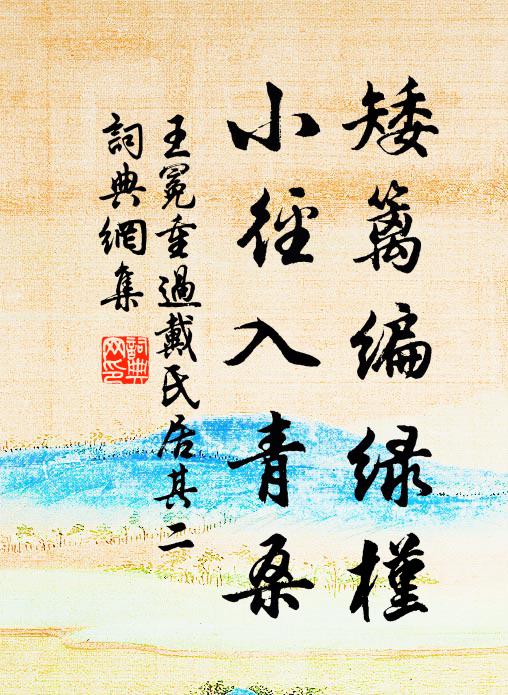 矮篱编绿槿
小径入青桑
王冕重過戴氏居其二
詞典網集
詞典網印